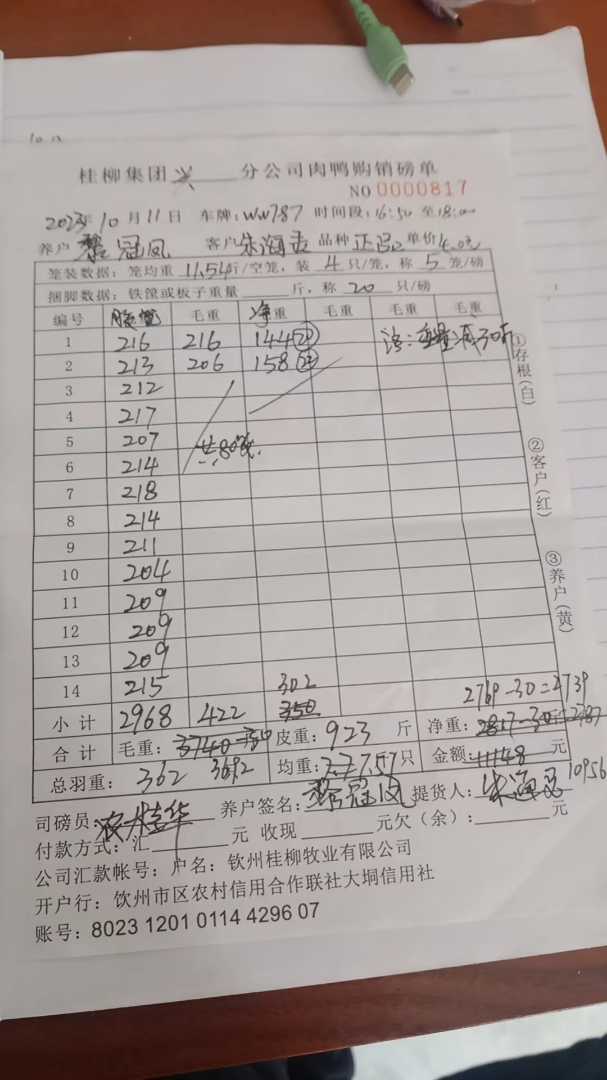 桂柳集团兴分公司肉鸭购销磅单
NO 0000817
2023年10月11日 车牌:WW787 时间段:16:50 至18:00
养户 黎冠凤 客户 品种 单价
笼装数据: 笼均重 11.54斤/空笼, 装 4 只/笼, 称 5 笼/磅
捆脚数据: 铁镗或板子重量 斤, 称 20 只/磅
编号 毛重 净重 毛重 毛重 毛重
1 216 216 144 注:重量减30斤
2 213 206 158
3 212
4 217
5 207 共80只
6 214
7 218
8 214
9 211
10 204
11 209
12 209
13 209
14 215 302 2769-30=2739
小计 2968 422 350 净重: 2817-30=2787
合计 毛重: 3740 皮重: 923 斤 金额: 11148 元
3692 10956
总羽重: 362 均重: 7.57只
司磅员: 养户签名: 黎冠凤 提货人:
付款方式: 汇 元 收现 元欠(余): 元
公司汇款帐号: 户名: 钦州桂柳牧业有限公司
开户行: 钦州市区农村信用合作联社大垌信用社
账号: 8023 1201 0114 4296 07
①存根(白)
②客户(红)
③养户(黄)